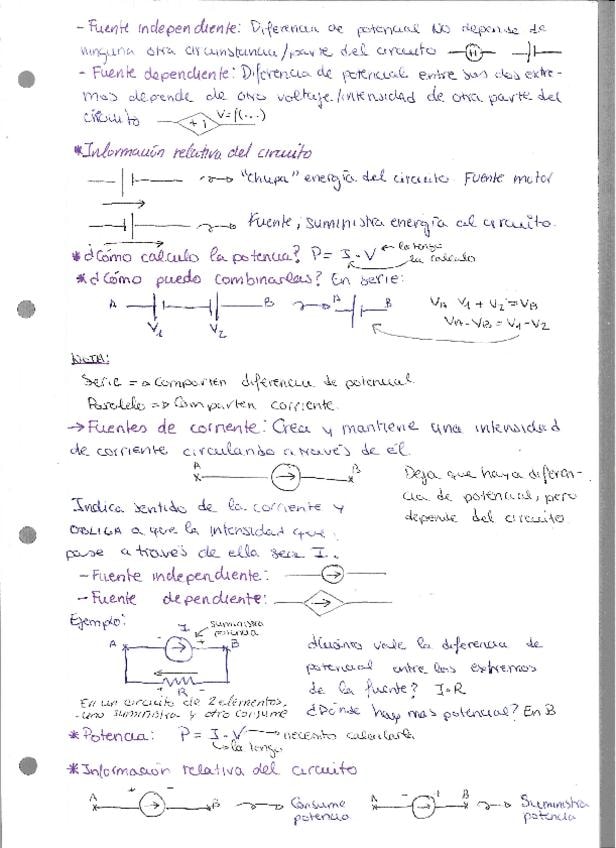 - Fuente independiente: Diferencia de potencial NO depende de
ninguna otra circunstancia/parte del circuito
- Fuente dependiente: Diferencia de potencial entre sus dos extre-
mos depende de otro voltaje/intensidad de otra parte del
circuito + - V=f(...)
*Información relativa del circuito
"Chupa" energía del circuito Fuente motor
Fuente, suministra energía al circuito.
*¿Cómo calculo la potencia? P = I · V la tengo
la calculo
*¿Cómo puedo combinarlas? En serie:
A B A B VA V1 + V2 = VB
V1 V2 VA - VB = V1 - V2
NOTA:
Serie => Comparten diferencia de potencial
Paralelo => Comparten corriente.
→ Fuentes de corriente: Crea y mantiene una intensidad
de corriente circulando a través de él.
A B
Deja que haya diferen-
cia de potencial, pero
depende del circuito
Indica sentido de la corriente y
OBLIGA a que la intensidad que
pase a través de ella sea I.
- Fuente independiente:
- Fuente dependiente:
Ejemplo: I suministra
potencia
A - + B
+ R -
¿Cuánto vale la diferencia de
potencial entre los extremos
de la fuente? I·R
¿Dónde hay mas potencial? En B
En un circuito de 2 elementos,
uno suministra y otro consume
*Potencia: P = I · V necesito calcularla
la tengo
*Información relativa del circuito
A + - B Consume
potencia
A - + B Suministra
potencia